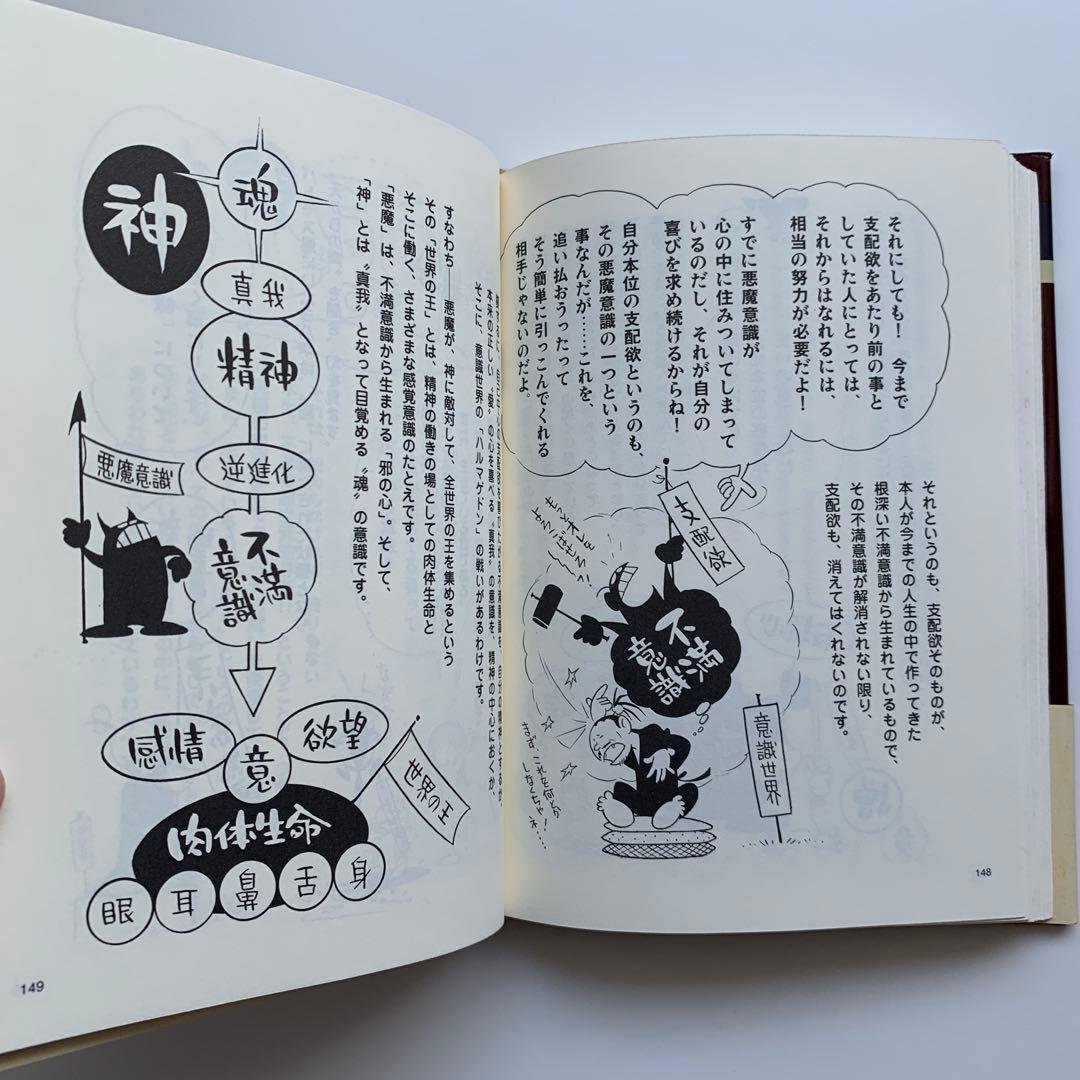 それにしても！　今まで
支配欲をあたり前の事と
していた人にとっては、
それからはなれるには、
相当の努力が必要だよ！
すでに悪魔意識が
心の中に住みついてしまって
いるのだし、それが自分の
喜びを求め続けるからね！
自分本位の支配欲というのも、
その悪魔意識の一つという
事なんだが……これを、
追い払おうったって
そう簡単に引っこんでくれる
相手じゃないのだよ。
それというのも、支配欲そのものが、
本人が今までの人生の中で作ってきた
根深い不満意識から生まれているもので、
その不満意識が解消されない限り、
支配欲も、消えてはくれないのです。
支配欲
不満
意識
意識世界
まず、これを何とか
しなくちゃネ…！
148
本来の正しい〝愛〟の心を喜べる〝真我〟の意識を、精神の中心におくか、
そこに、意識世界の「ハルマゲドン」の戦いがあるわけです。
すなわち——悪魔が、神に敵対して、全世界の王を集めるという
その「世界の王」とは、精神の働きの場としての肉体生命と
そこに働く、さまざまな感覚意識のたとえです。
「悪魔」は、不満意識から生まれる「邪の心」。そして、
「神」とは〝真我〟となって目覚める〝魂〟の意識です。
神
魂
真我
精神
逆進化
悪魔意識
不満
意識
感情
意
欲望
世界の王
肉体生命
眼
耳
鼻
舌
身
149